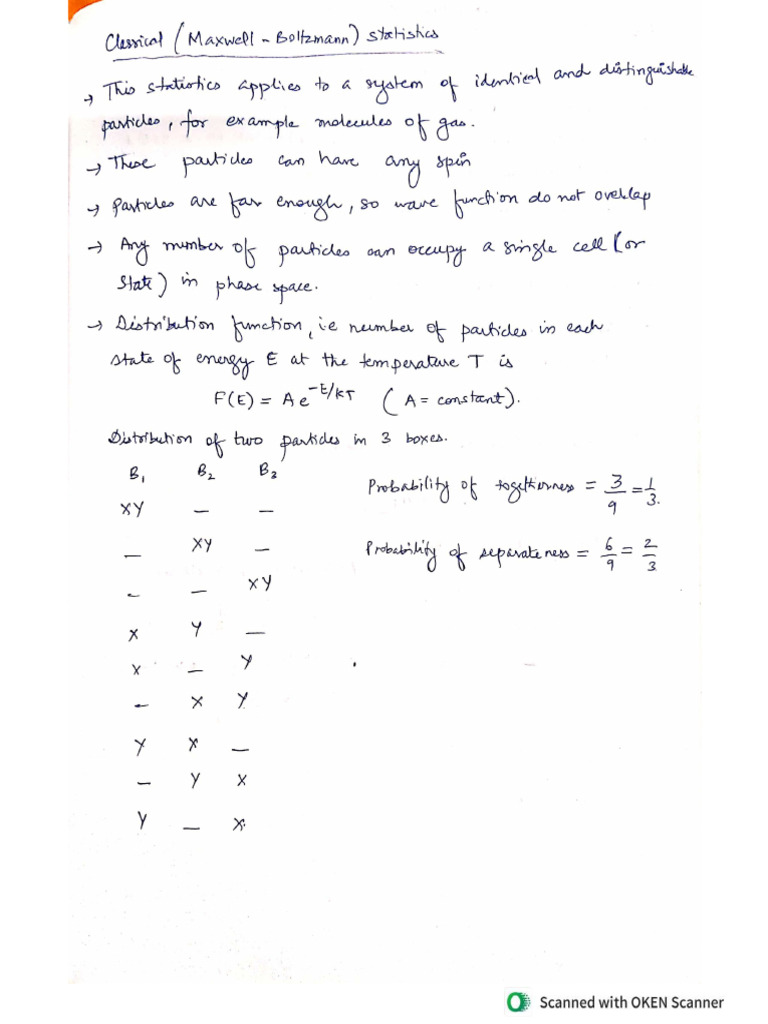 Classical (Maxwell - Boltzmann) Statistics
→ This statistics applies to a system of identical and distinguishable
particles, for example molecules of gas.
→ These particles can have any spin
→ Particles are far enough, so wave function do not overlap
→ Any number of particles can occupy a single cell (or
state) in phase space.
→ Distribution function, i.e number of particles in each
state of energy E at the temperature T is
F(E) = A e^-E/kT (A = constant).
Distribution of two particles in 3 boxes.
B₁ B₂ B₃
XY — —
— XY —
— — XY
X Y —
X — Y
— X Y
Y X —
— Y X
Y — X
Probability of togetherness = 3/9 = 1/3.
Probability of separateness = 6/9 = 2/3
Scanned with OKEN Scanner